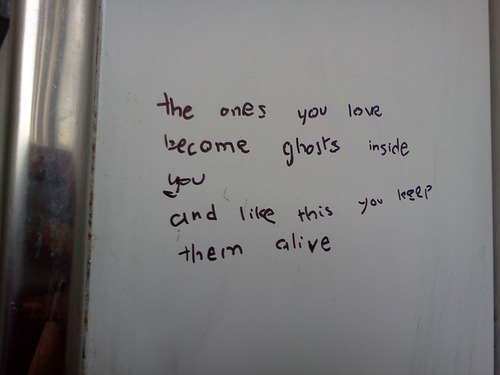 the ones you love
become ghosts inside
you
and like this you keep
them alive